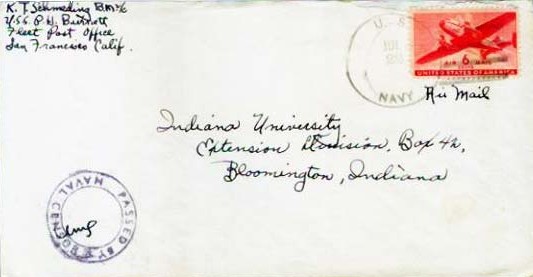 K. T. Schmeding B.M.1/c
USS. P. H. Burnett
Fleet Post Office
San Francisco Calif.
U. S.
NAVY
AIR 6 MAIL
UNITED STATES OF AMERICA
Air Mail
Indiana University
Extension Division, Box 42,
Bloomington, Indiana
PASSED BY
NAVAL CEN